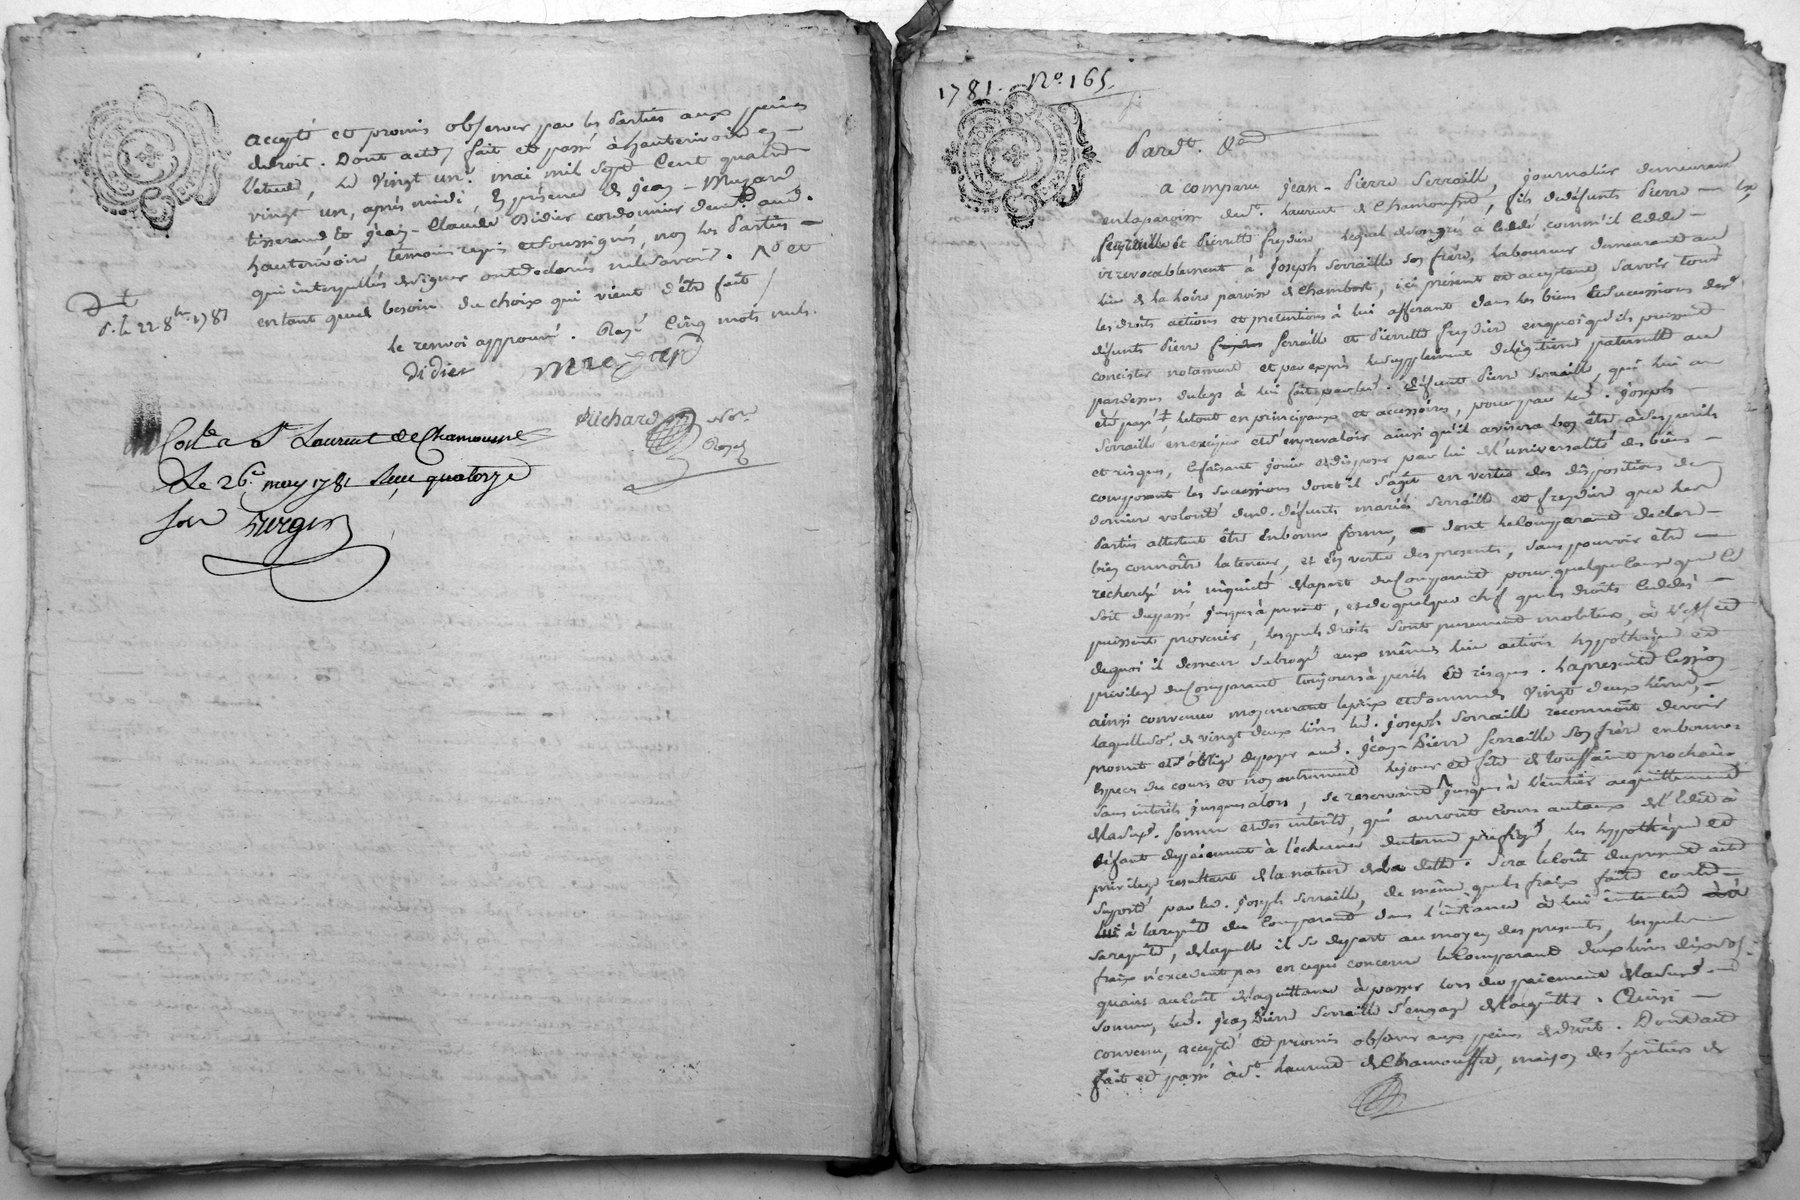 accepté et promis observer par les parties aux peines
de droit. Dont acte, fait et passé à hauterivoire en
l'etude, le vingt un. mai mil sept cent quatre
vingt un, après midi, En présence de jean - Mugard
tisserand et jean - Claude Didier cordonnier dem.t aud.
hauterivoire temoins requis et soussignés, non les parties -
qui interpellés de signer ont declarés ne le savoir.
en tant que de besoin du choix qui vient d'être fait /
le renvoi approuvé. Rayé cinq mots nuls.
didier
Richard No.re
Royal
le 22 8bre 1781
Con.le a St Laurent de Chamousset
Le 26e may 1781 Reçu quatorze
sols
1781. No. 165.
Pardt.
a comparu jean - Pierre Serraille, journalier demeurant
en la paroisse de St. Laurent de Chamousset, fils de défunts Pierre -
Serraille et Pierrette freydier lequel de son gré à cédé comm'il cedde -
irrevocablement à joseph Serraille son frère, laboureur demeurant au
lieu de la loire paroisse de Chambost, ici présent et acceptant Savoir tous
les droits actions et prétentions à lui afferant dans les biens et successions des
défunts Pierre Serraille et Pierrette freydier en quoi qu'ils puissent
concister notament et par exprès le supplement de legitime paternelle au
pardessus du legs à lui fait par led. défunt Pierre Serraille, qui lui a
été payé, le tout en principaux et accessoires, pour par led. joseph -
Serraille en exiger et s'en prevaloir ainsi qu'il avisera bon être à ses perils
et risques, le faisant jouir et disposer par lui de l'universalité des biens -
composant les successions dont il s'agit en vertu des dispositions de
derniere volonté desd. défunts mariés Serraille et freydier que les
Parties attestent être en bonne forme, dont le Comparant declare -
bien connoître la teneur, et En vertu des presents, sans pouvoir etre -
recherché ni inquieté de la part du Comparant pour quelque cause que ce
soit du passé jusques à present, et de quelque chef que les droits ceddés -
puissent provenir, lesquels droits sont purement mobiliers, à l'effet
de quoi il demeure subrogé aux mêmes lieu actions hypothèque et
privilege du Comparant toujours à perils et risques. La presente Cession
ainsi convenue moyenant le prix et somme de vingt deux livres, -
laquelle so.e de vingt deux livres led. joseph Serraille reconnoit devoir
promet et s'oblige de payer aud. jean - Pierre Serraille son frère en bonnes
Especes du cours et non autrement le jour et fête de toussaint prochaine
sans interets jusques alors, se reservant jusques à l'entier acquittement
de lad. somme et des interets, qui auront cours au taux de l'Edit à
défaut de payement à l'échéance du terme préfixé, les hypothèque et
privilege resultant de la nature de la dette. Sera le coût du present acte
suporté par led. joseph Serraille, de même que les fraix faits contre
lui à la requête du Comparant dans l'instance à lui intentée
sa requête, de laquelle il se depart au moyen des presents, lesquels
fraix n'excedent pas en ce qui concerne le Comparant deux livres dix sols
quant au coût de la quittance à passer lors du payement de lad.
Somme, led. jean Pierre Serraille s'engage de l'acquitter. Ainsi -
convenu, accepté et promis observer aux peines de droit. Dont acte
fait et passé à St. Laurent de Chamousset, maison des heritiers de